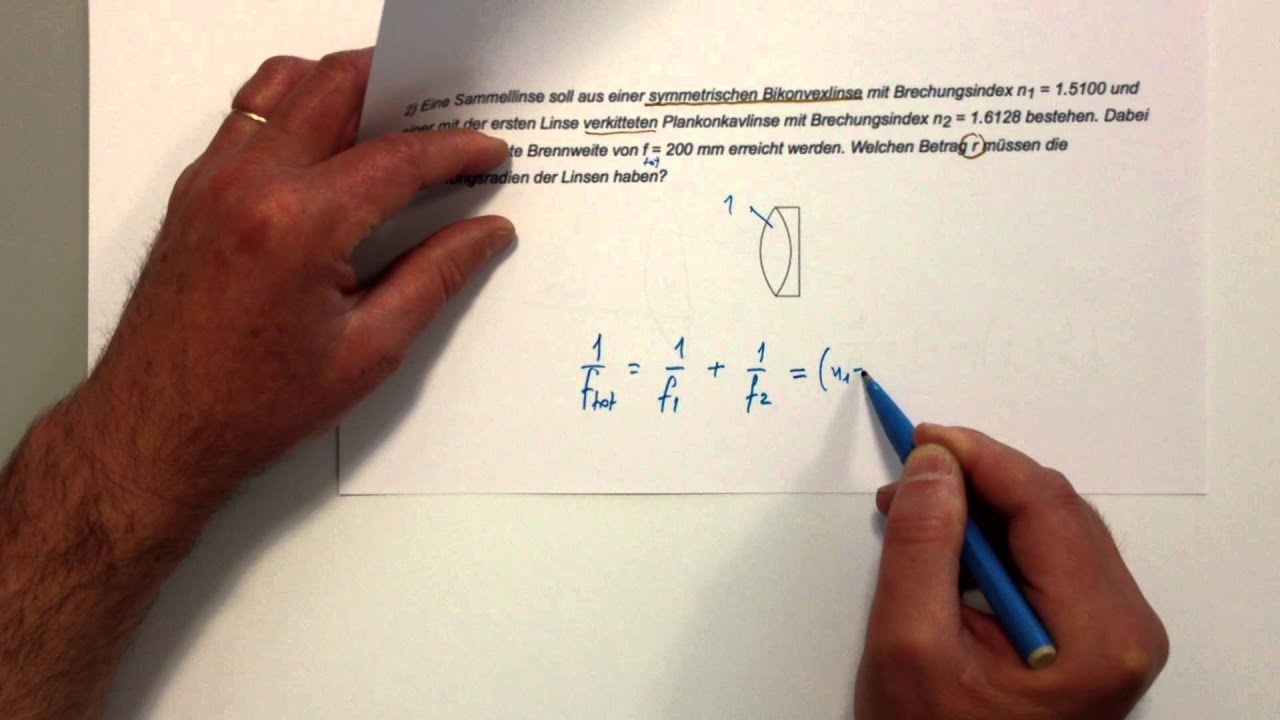 2) Eine Sammellinse soll aus einer symmetrischen Bikonvexlinse mit Brechungsindex n₁ = 1.5100 und
mit der ersten Linse verkitteten Plankonkavlinse mit Brechungsindex n₂ = 1.6128 bestehen. Dabei
Brennweite von f = 200 mm erreicht werden. Welchen Betrag r müssen die
tot
der Linsen haben?
1
1/f_tot = 1/f₁ + 1/f₂ = (n₁-